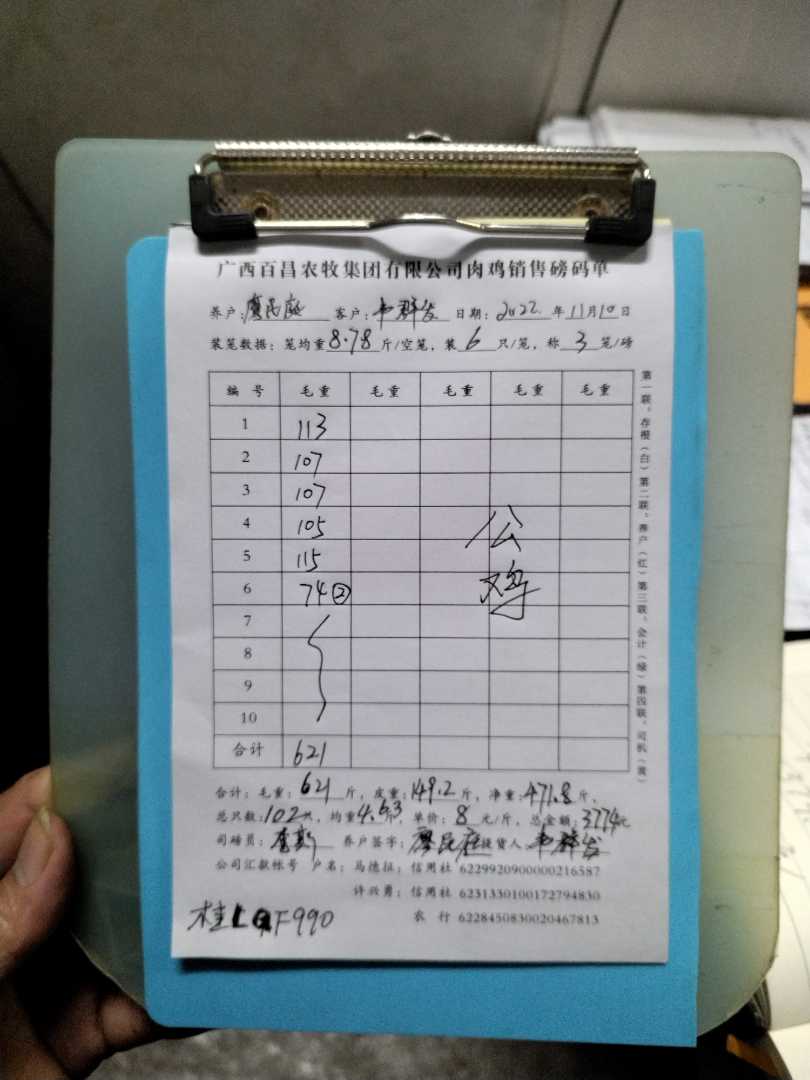 广西百昌农牧集团有限公司肉鸡销售磅码单
养户:廖民庭 客户:韦群发 日期:2022年11月10日
装笼数据:笼均重8.78斤/空笼,装6只/笼,称3笼/磅
编号 毛重 毛重 毛重 毛重 毛重
1 113
2 107
3 107
4 105 公
5 115
6 74② 鸡
7
8
9
10
合计 621
合计:毛重:621斤,皮重:149.2斤,净重:471.8斤,
总只数:102只,均重4.63斤,单价:8元/斤,总金额:3774元
司磅员:李新 养户签字:廖民庭 提货人:韦群发
公司汇款帐号 户名:马德征:信用社 6229920900000216587
许兴勇:信用社 6231330100172794830
农行 6228450830020467813
桂LQF990
第一联、存根(白)第二联、养户(红)第三联、会计(绿)第四联、司机(黄)